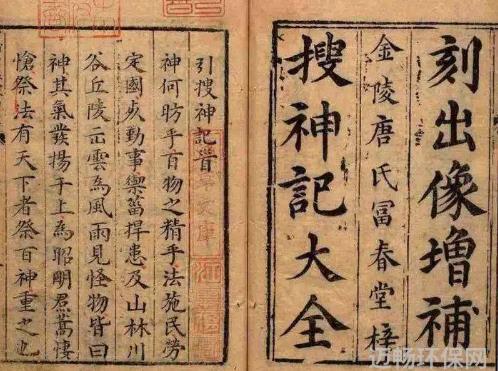 刻出像增補
金陵唐氏冨春堂梓
搜神記大全
引搜神記首
神何昉乎百物之精乎法施民勞
定國死勤事禦菑捍患及山林川
谷丘陵出雲為風雨見怪物皆曰
神其氣發揚于上為昭明焄蒿悽
愴祭法有天下者祭百神重之也
迈畅环保网